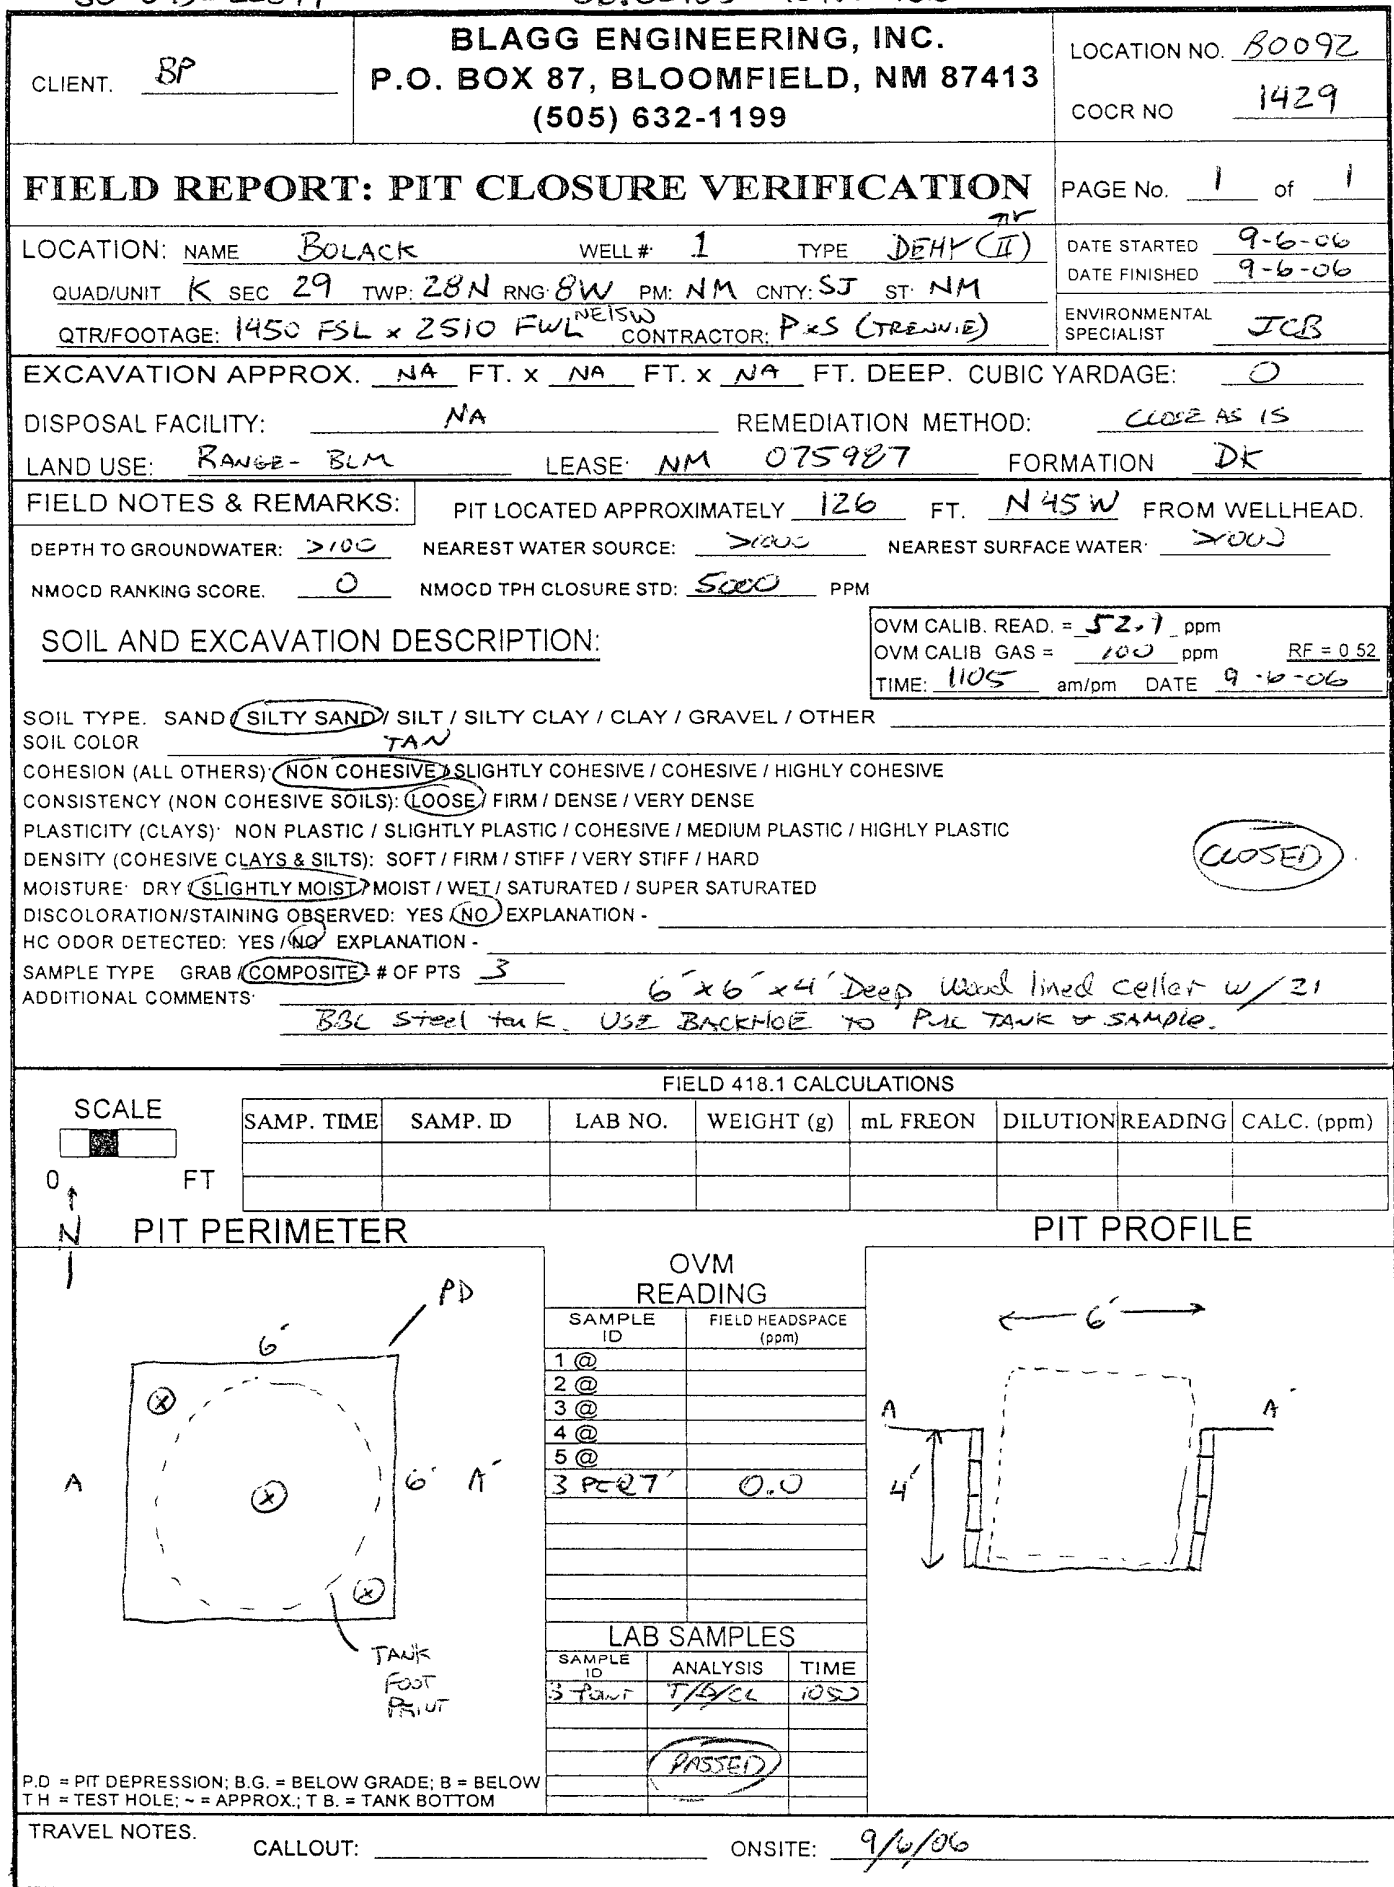 BLAGG ENGINEERING, INC.
P.O. BOX 87, BLOOMFIELD, NM 87413
(505) 632-1199
CLIENT. BP
LOCATION NO. B0092
COCR NO 1429
FIELD REPORT: PIT CLOSURE VERIFICATION
PAGE No. 1 of 1
LOCATION: NAME BOLACK WELL #: 1 TYPE DEHY (II)
DATE STARTED 9-6-06
DATE FINISHED 9-6-06
QUAD/UNIT K SEC 29 TWP: 28N RNG: 8W PM: NM CNTY: SJ ST: NM
QTR/FOOTAGE: 1450 FSL x 2510 FWL NE/SW CONTRACTOR: P&S (TRENNIE)
ENVIRONMENTAL SPECIALIST JCB
EXCAVATION APPROX. NA FT. x NA FT. x NA FT. DEEP. CUBIC YARDAGE: 0
DISPOSAL FACILITY: NA REMEDIATION METHOD: CLOSE AS IS
LAND USE: RANGE - BLM LEASE: NM 075987 FORMATION DK
FIELD NOTES & REMARKS: PIT LOCATED APPROXIMATELY 126 FT. N45W FROM WELLHEAD.
DEPTH TO GROUNDWATER: >100 NEAREST WATER SOURCE: >1000 NEAREST SURFACE WATER: >1000
NMOCD RANKING SCORE. 0 NMOCD TPH CLOSURE STD: 5000 PPM
SOIL AND EXCAVATION DESCRIPTION:
OVM CALIB. READ. = 52.9 ppm
OVM CALIB GAS = 100 ppm RF = 0 52
TIME: 1105 am/pm DATE 9-6-06
SOIL TYPE. SAND / SILTY SAND / SILT / SILTY CLAY / CLAY / GRAVEL / OTHER
SOIL COLOR TAN
COHESION (ALL OTHERS): NON COHESIVE / SLIGHTLY COHESIVE / COHESIVE / HIGHLY COHESIVE
CONSISTENCY (NON COHESIVE SOILS): LOOSE / FIRM / DENSE / VERY DENSE
PLASTICITY (CLAYS): NON PLASTIC / SLIGHTLY PLASTIC / COHESIVE / MEDIUM PLASTIC / HIGHLY PLASTIC
DENSITY (COHESIVE CLAYS & SILTS): SOFT / FIRM / STIFF / VERY STIFF / HARD
CLOSED
MOISTURE: DRY / SLIGHTLY MOIST / MOIST / WET / SATURATED / SUPER SATURATED
DISCOLORATION/STAINING OBSERVED: YES / NO EXPLANATION -
HC ODOR DETECTED: YES / NO EXPLANATION -
SAMPLE TYPE GRAB / COMPOSITE - # OF PTS 3
ADDITIONAL COMMENTS: 6' x 6' x 4' Deep Wood lined cellar w/ 21
BBL Steel tank. USE BACKHOE TO PULL TANK & SAMPLE.
FIELD 418.1 CALCULATIONS
SCALE
0 FT
SAMP. TIME SAMP. ID LAB NO. WEIGHT (g) mL FREON DILUTION READING CALC. (ppm)
N
PIT PERIMETER
PIT PROFILE
PD
6'
A
6' A'
TANK
FOOT
PRINT
OVM
READING
SAMPLE ID FIELD HEADSPACE (ppm)
1 @
2 @
3 @
4 @
5 @
3 PC @ 7' 0.0
LAB SAMPLES
SAMPLE ID ANALYSIS TIME
3 Point T/B/CL 1050
PASSED
6'
A A'
4'
P.D = PIT DEPRESSION; B.G. = BELOW GRADE; B = BELOW
T H = TEST HOLE; ~ = APPROX.; T B. = TANK BOTTOM
TRAVEL NOTES.
CALLOUT: ONSITE: 9/6/06